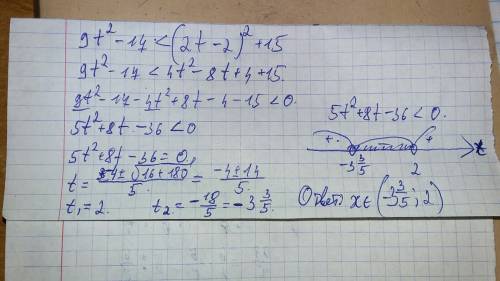 9t²-17<(2t-2)²+15
9t²-17<4t²-8t+4+15.
9t²-17-4t²+8t-4-15<0.
5t²+8t-36<0
5t²+8t-36=0,
t= (-4±√16+180)/5 = (-4±14)/5.
t₁=2. t₂= -18/5 = -3 3/5.
5t²+8t-36<0.
+. - +
-3 3/5 2 t
Ответ: x∈(-3 3/5; 2)